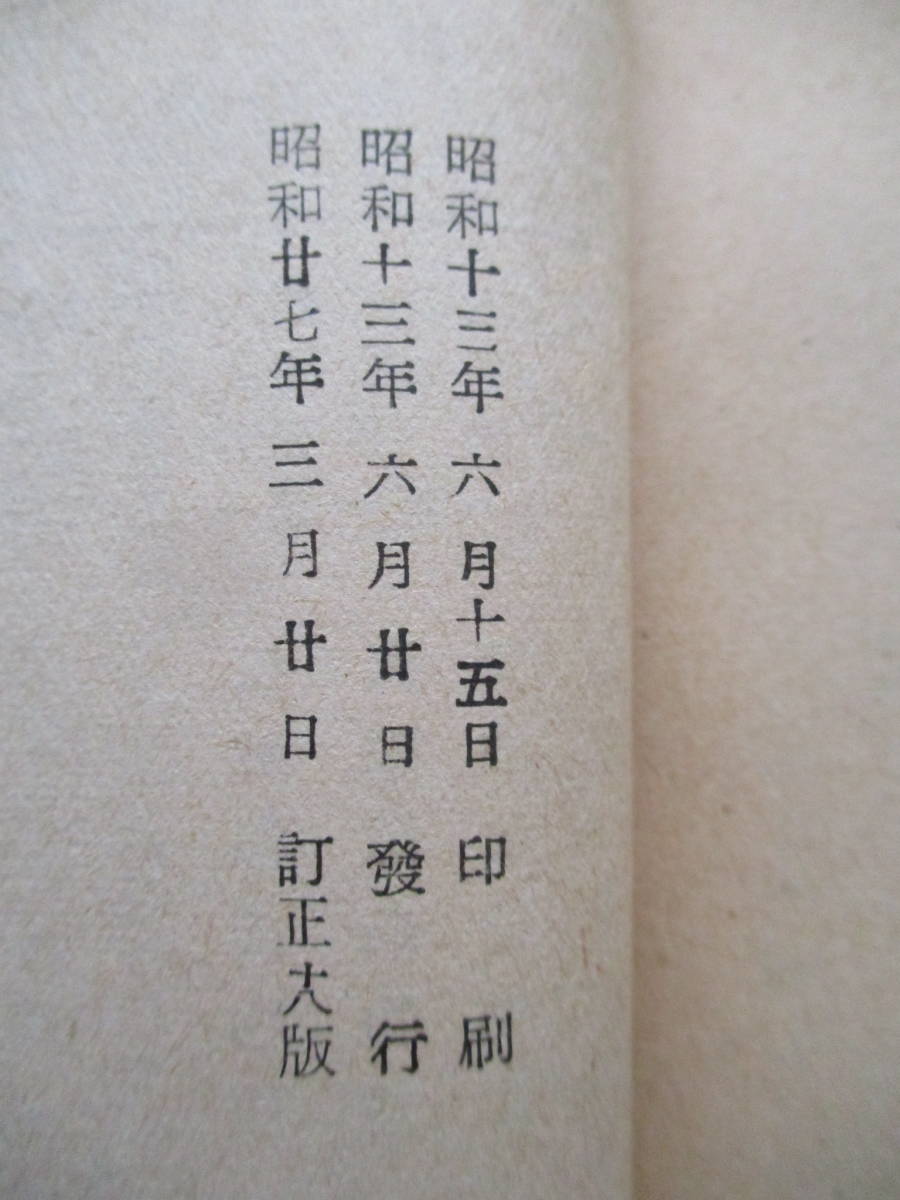 昭和十三年六月十五日印刷
昭和十三年六月廿日發行
昭和廿七年三月廿日訂正十八版